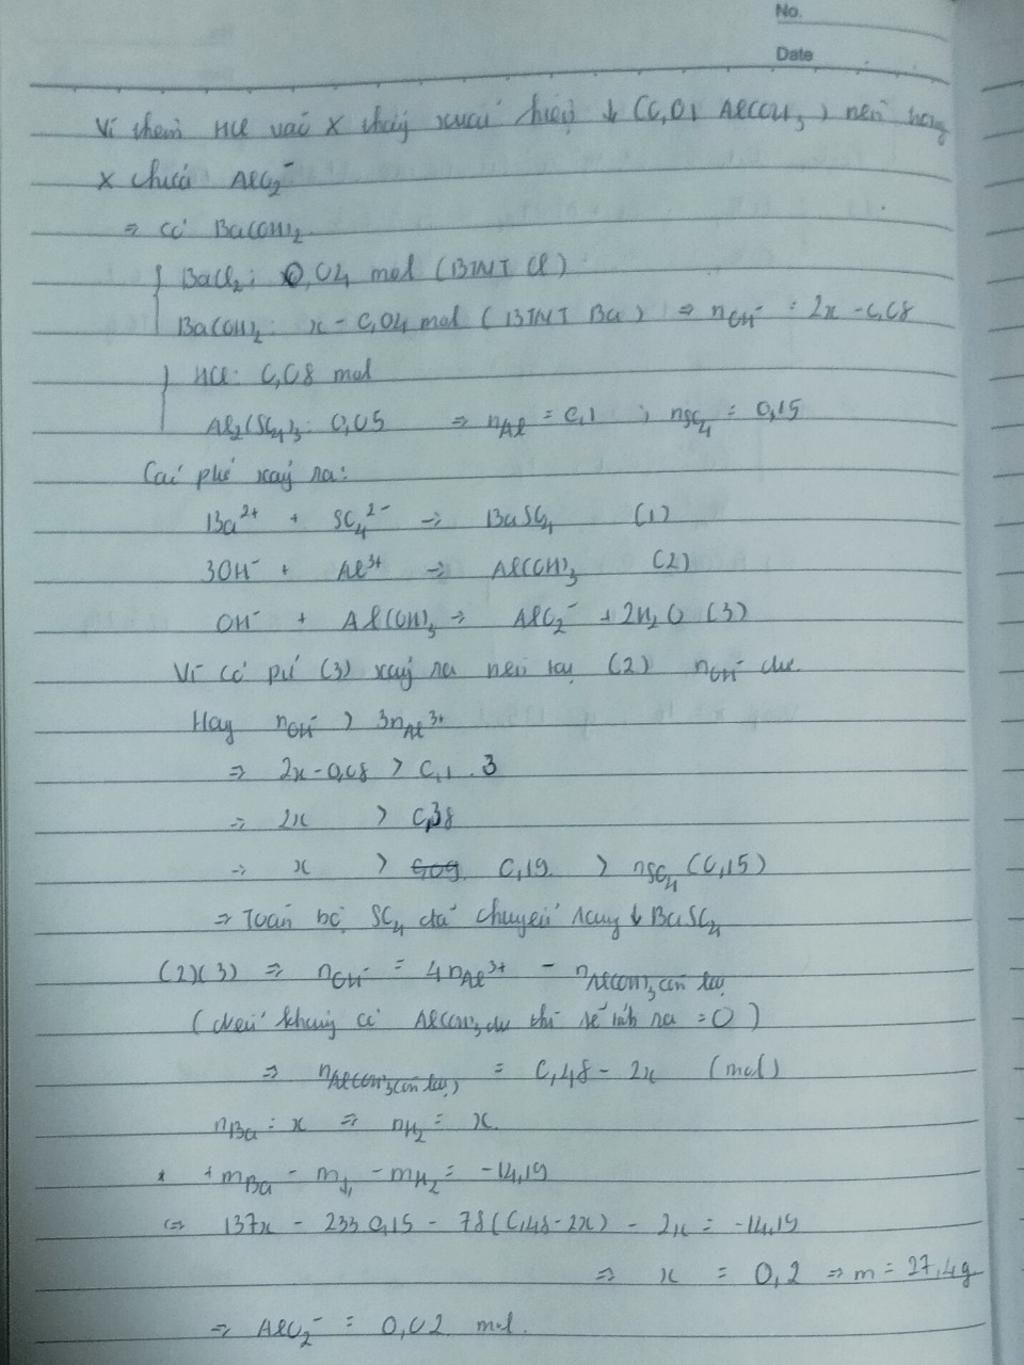 No.
Date
Vì thêm HCl vào X thấy xuất hiện ↓ (0,01 Al(OH)3) nên trong
X chứa AlO2⁻
⇒ có Ba(OH)2
{ BaCl2: 0,04 mol (BTNT Cl)
Ba(OH)2: x - 0,04 mol (BTNT Ba) ⇒ nOH⁻ = 2x - 0,08
{ HCl: 0,08 mol
Al2(SO4)3: 0,05 ⇒ nAl = 0,1 ; nSO4 = 0,15
Các pứ xảy ra:
Ba²⁺ + SO4²⁻ → BaSO4 (1)
3OH⁻ + Al³⁺ → Al(OH)3 (2)
OH⁻ + Al(OH)3 → AlO2⁻ + 2H2O (3)
Vì có pứ (3) xảy ra nên tại (2) nOH⁻ dư
Hay nOH⁻ > 3nAl³⁺
⇒ 2x - 0,08 > 0,1 . 3
⇒ 2x > 0,38
⇒ x > 0,19 > nSO4 (0,15)
⇒ Toàn bộ SO4 đã chuyển sang ↓ BaSO4
(2)(3) ⇒ nOH⁻ = 4nAl³⁺ - nAl(OH)3 còn lại
(Nếu không có Al(OH)3 dư thì sẽ tính ra = 0)
⇒ nAl(OH)3(còn lại) = 0,48 - 2x (mol)
nBa = x ⇒ nH2 = x
* +mBa - m↓ - mH2 = -14,19
⇔ 137x - 233.0,15 - 78(0,48-2x) - 2x = -14,19
⇒ x = 0,2 ⇒ m = 27,4g
⇒ AlO2⁻ = 0,02 mol.